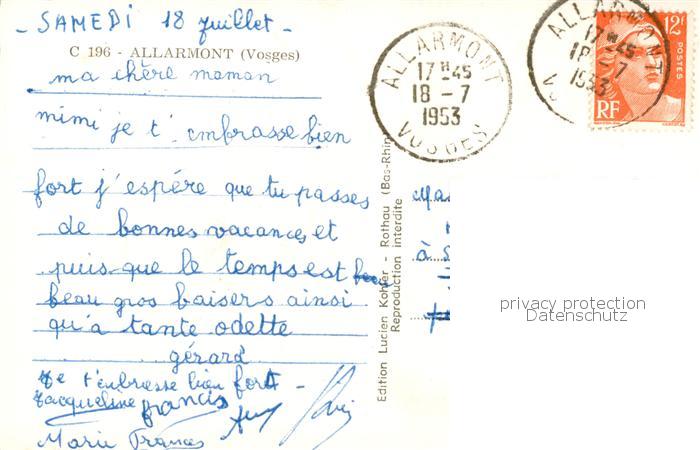 - SAMEDI 18 Juillet -
C 196 - ALLARMONT (Vosges)
ma chère maman
mimi je t'embrasse bien
fort j'espère que tu passes
de bonnes vacances et
puis que le temps est beau
beau gros baisers ainsi
qu'à tante odette
gérard
Je t'enbrasse bien fort -
Jacqueline francis
Marie Frances
ALLARMONT
17H45
18-7
1953
VOSGES
ALLARMONT
17H45
18-7
1953
12F
POSTES
RF
Edition Lucien Kohler - Rothau (Bas-Rhin)
Reproduction interdite
à
privacy protection
Datenschutz